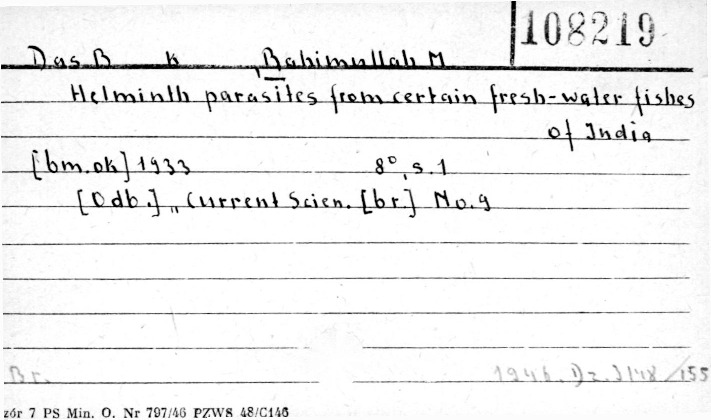 108219
Das B K, Rahimullah M
Helminth parasites from certain fresh-water fishes
of India
[bm.ok] 1933 8°, s.1
[Odb.] „Current Scien. [br.] No.9
Br. 1946. Dz. 3/48/155
zór 7 PS Min. O. Nr 797/46 PZWS 48/C146